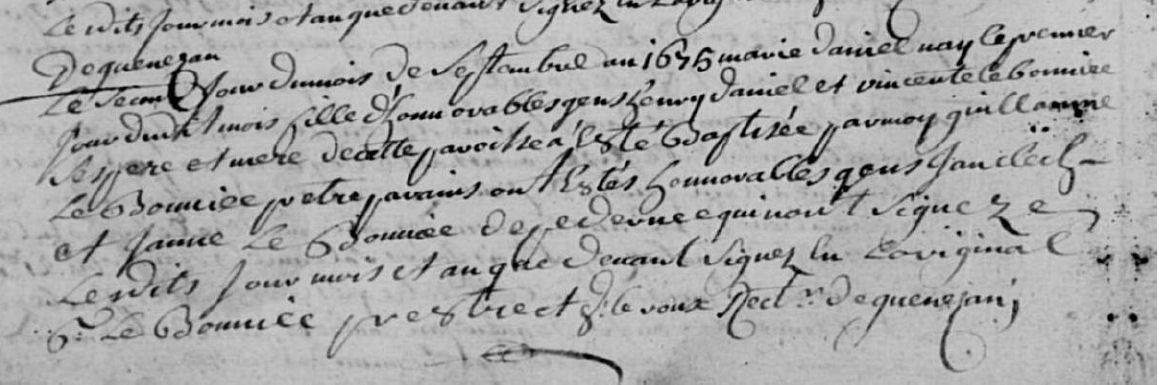 Lesdits jour mois et an que devant Signez en Lorig
De quenezan
Le Second jour du mois de Septembre an 1675 marie daniel nay le premier
jour dudit mois fille d'honnorables gens henry daniel et vincente le bonniec
Ses pere et mere de cette paroisse a Esté Baptisée par moy guillaume
Le Bonniec pretre parains ont Estés honnorables gens Jan
et Janne Le Bonniec de pederneq qui nont Signez
Lesdits jour mois et an que devant Signez en Loriginal
G. Le Bonniec prestre et le roux Rectr. De quenezan